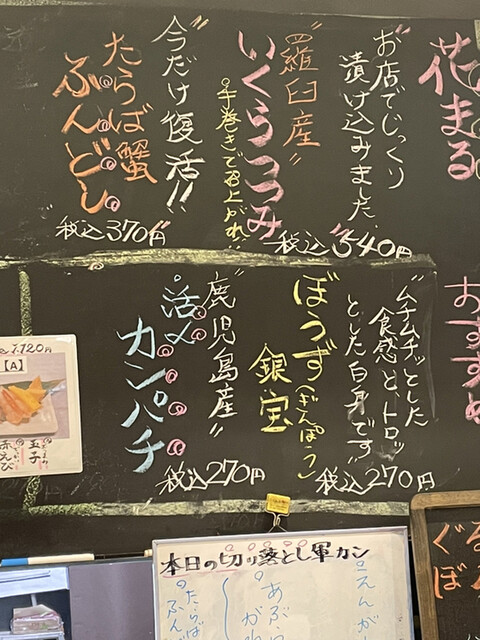 花まる
お店でじっくり
漬け込みました
"羅臼産"
いくらつつみ
手巻きで召上がれ!!
税込540円
今だけ復活!!
たらば蟹
ふんどし
税込370円
おすすめ
"ムチムチッとした
食感と、トロッ
とした白身です"
ぼうず
銀宝
(ぎんぽう)
税込270円
"鹿児島産"
活〆
カンパチ
税込270円
1,720円
【A】
玉子
赤えび
本日の切り落とし軍カン
えんが
あぶ
がれ
たらば
ふん
ぐる
ぼ